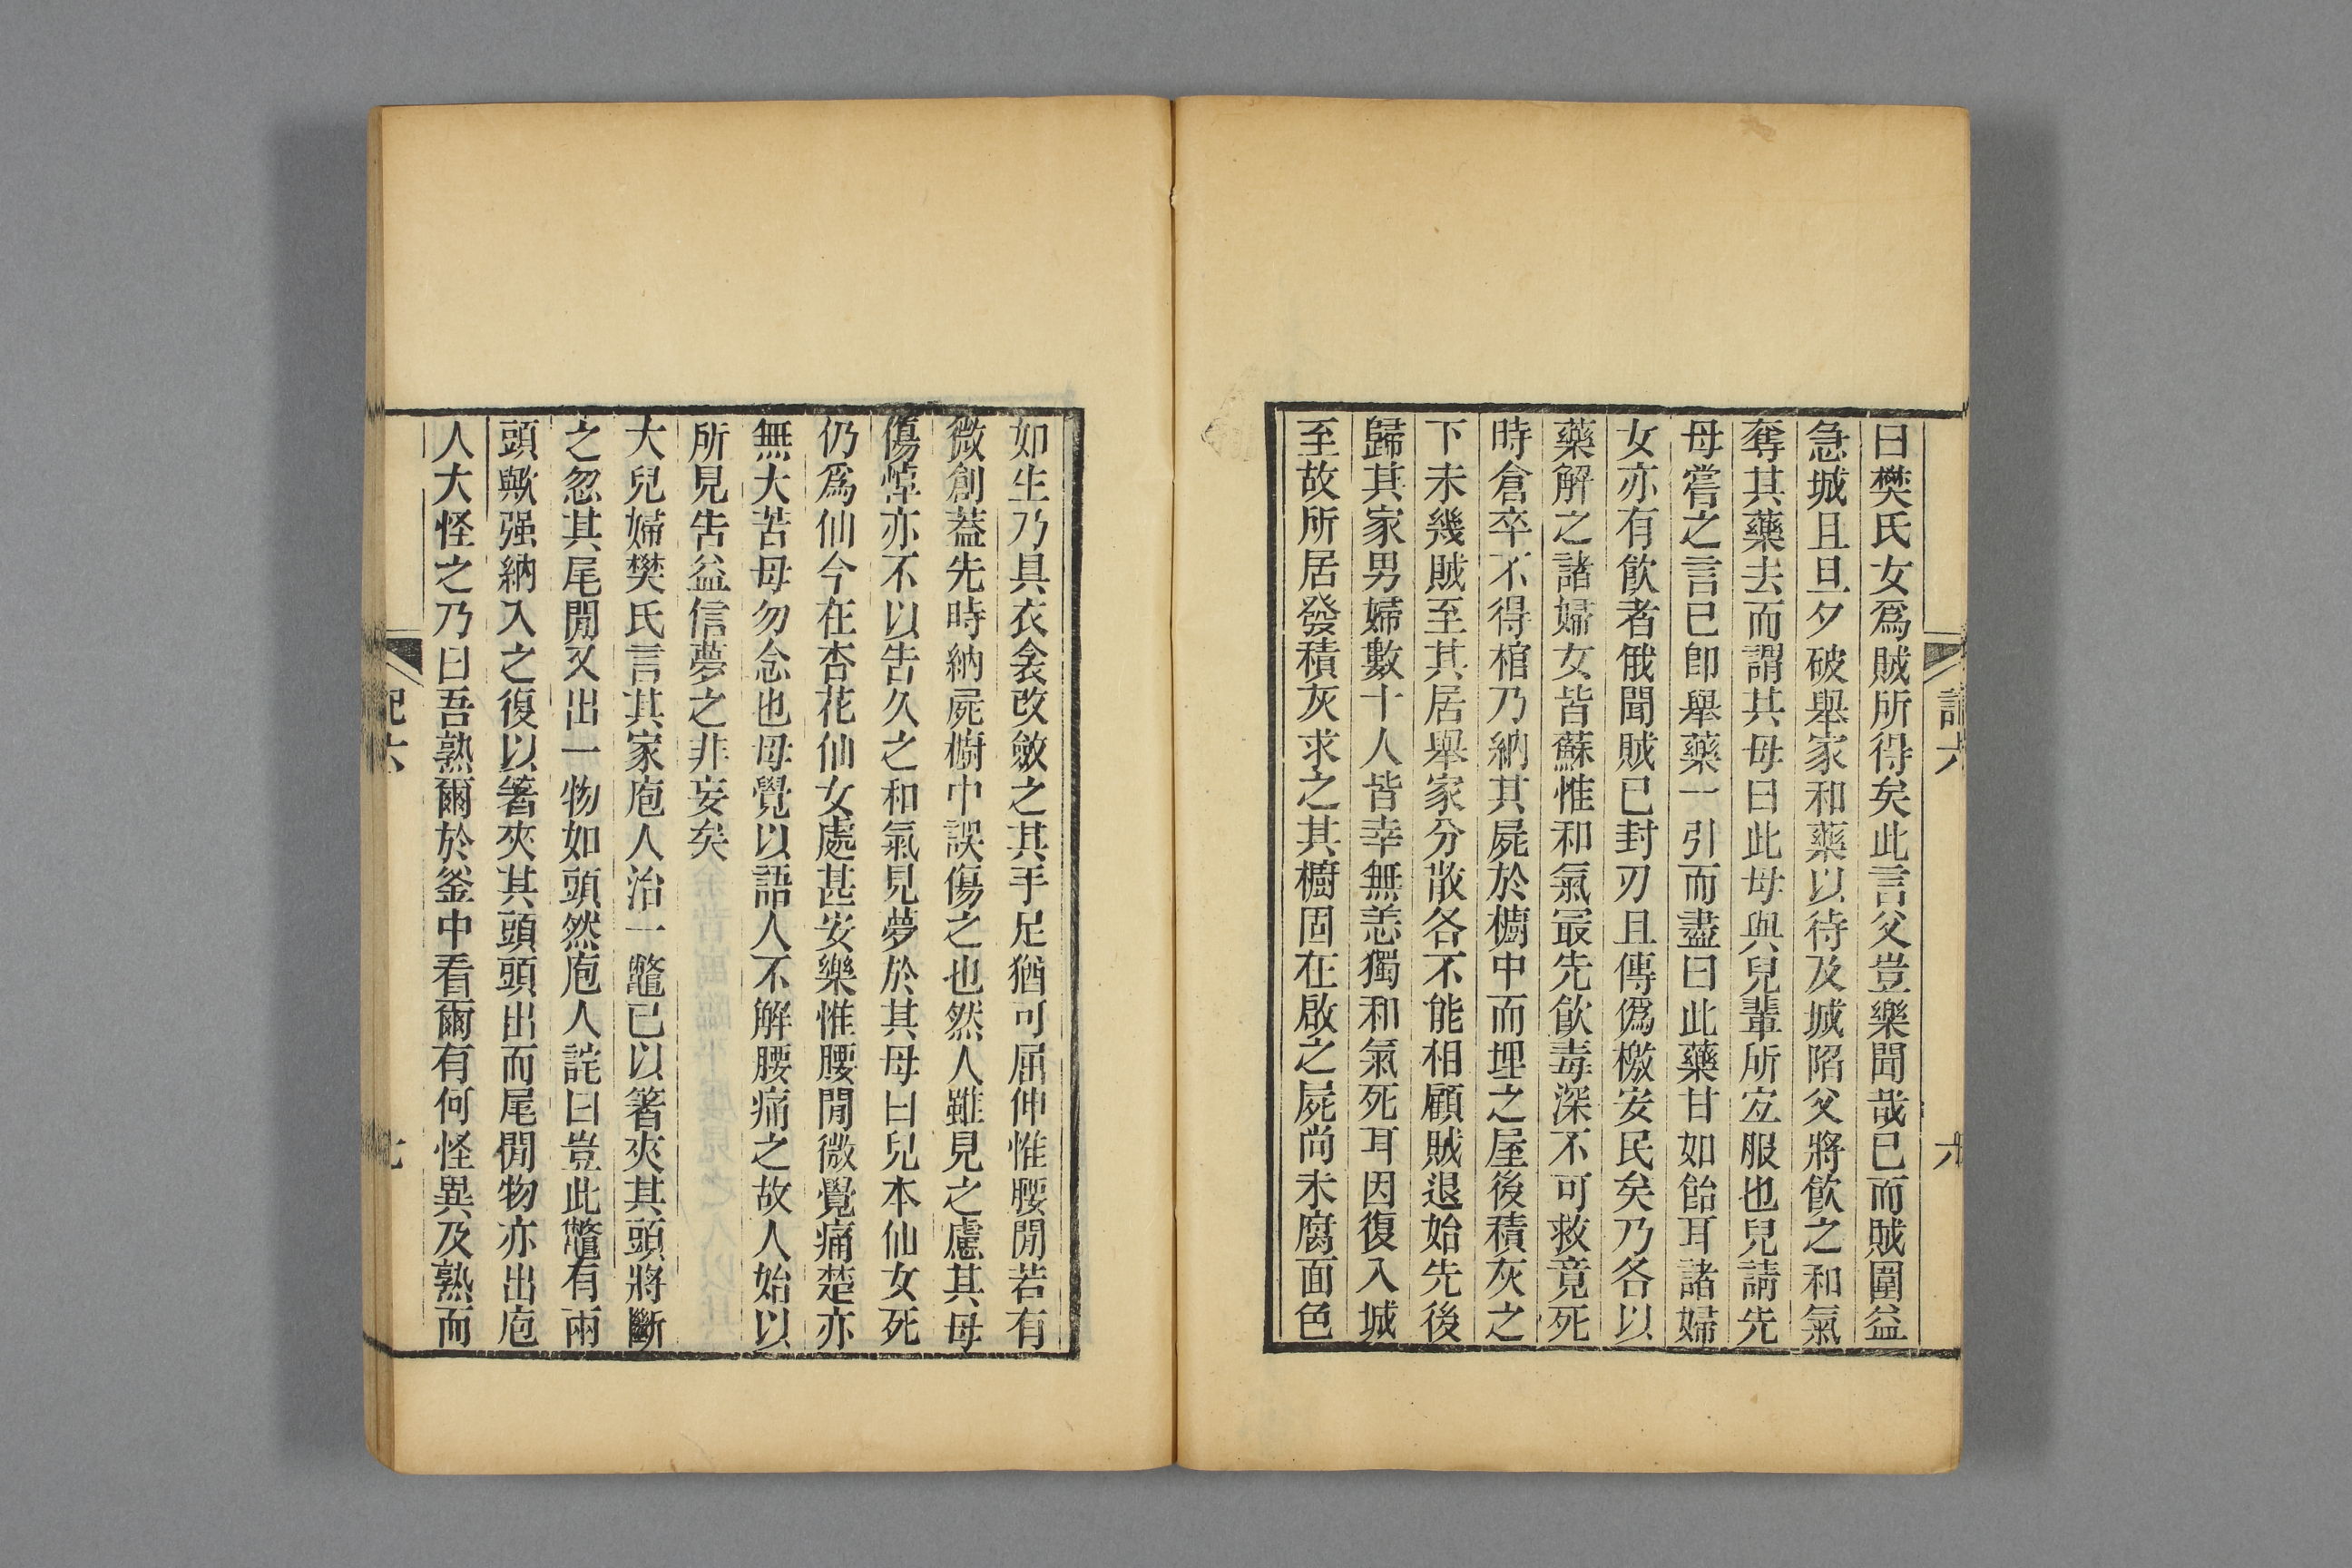 曰樊氏女爲賊所得矣此言父豈樂聞哉已而賊圍益
急城且旦夕破舉家和藥以待及城陷父將飮之和氣
奪其藥去而謂其母曰此母與兒輩所宜服也兒請先
母嘗之言已卽舉藥一引而盡曰此藥甘如飴耳諸婦
女亦有飮者俄聞賊已封刃且傳僞檄安民矣乃各以
藥解之諸婦女皆蘇惟和氣最先飮毒深不可救竟死
時倉卒不得棺乃納其屍於櫥中而埋之屋後積灰之
下未幾賊至其居舉家分散各不能相顧賊退始先後
歸其家男婦數十人皆幸無恙獨和氣死耳因復入城
至故所居發積灰求之其櫥固在啟之屍尚未腐面色
如生乃具衣衾改斂之其手足猶可屈伸惟腰閒若有
微創蓋先時納屍櫥中誤傷之也然人雖見之慮其母
傷悼亦不以告久之和氣見夢於其母曰兒本仙女死
仍爲仙今在杏花仙女處甚安樂惟腰閒微覺痛楚亦
無大苦母勿念也母覺以語人不解腰痛之故人始以
所見告益信夢之非妄矣
大兒婦樊氏言其家庖人治一鼈已以箸夾其頭將斷
之忽其尾閒又出一物如頭然庖人詫曰豈此鼈有兩
頭歟强納入之復以箸夾其頭頭出而尾閒物亦出庖
人大怪之乃曰吾熟爾於釜中看爾有何怪異及熟而
六
七